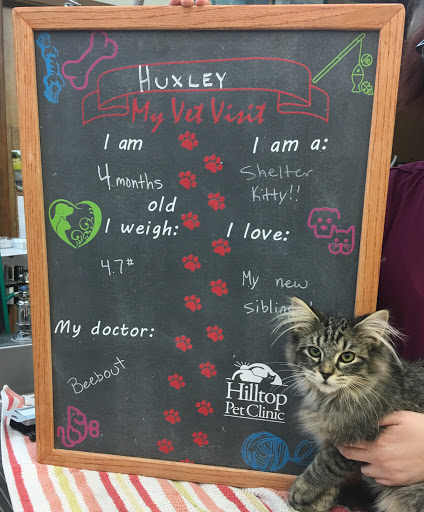 HUXLEY
My Vet Visit
I am
I am a:
4 months
old
Shelter
Kitty!!
I weigh:
I love:
4.7#
My new
My doctor:
Beebout
Hilltop
Pet Clinic